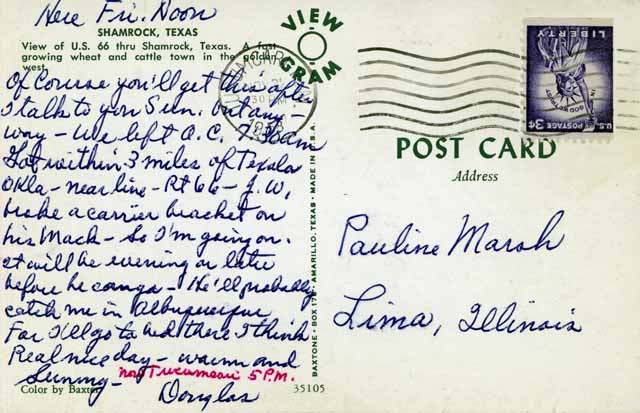 Here Fri. Noon
SHAMROCK, TEXAS
View of U.S. 66 thru Shamrock, Texas. A fast
growing wheat and cattle town in the golden
west.
Of Course you'll get this after
I talk to you Sun. but any-
way - We left O.C. 7:30am
Got within 3 miles of Texola
Okla - near line - Rt 66 - J.W.
broke a carrier bracket on
his Mack - So I'm going on.
It will be evening or later
before he can go - He'll probably
catch me in Albuquerque
For I'll go to bed there I think
Real nice day - warm and
Sunny - now Tucumcari 5 P.M.
Douglas
Color by Baxter
35105
VIEW
GRAM
BAXTONE - BOX 175 - AMARILLO, TEXAS - MADE IN U.S.A.
SHAMROCK
LIBERTY
IN GOD WE TRUST
U.S. POSTAGE 3¢
POST CARD
Address
Pauline Marsh
Lima, Illinois